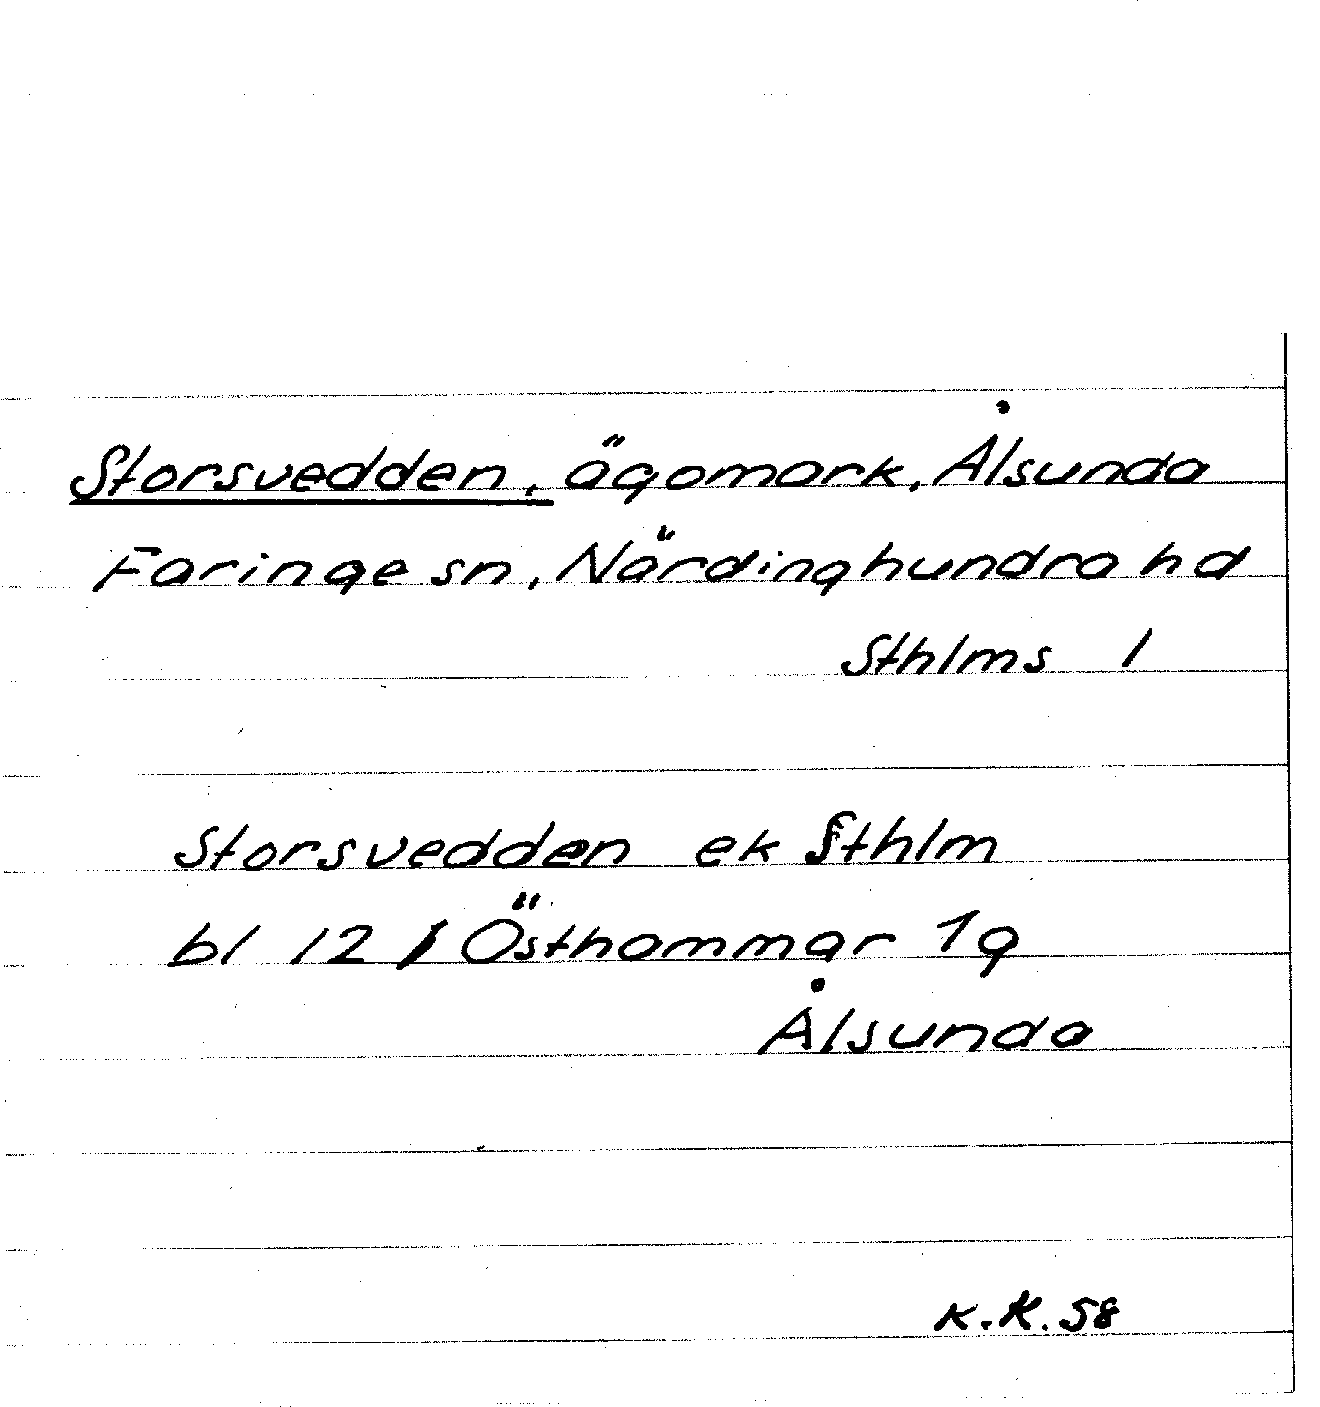 Storsvedden, ägomark, Ålsunda
Faringe sn, Närdinghundra hd
Sthlms l
Storsvedden ek Sthlm
bl 12, Östhammar 1g
Ålsunda
K.K.58